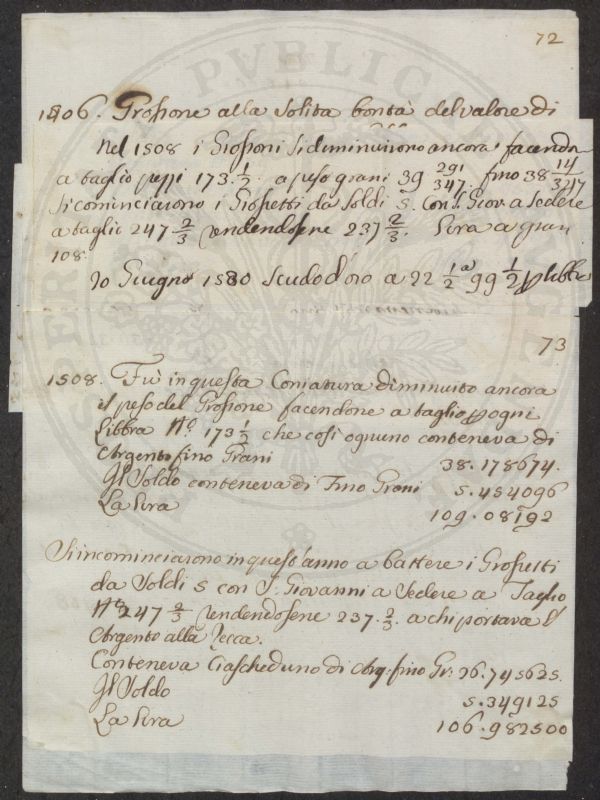 72
1506. Grossone alla solita bontà del valore di
Nel 1508 i Grossoni si diminuirono ancora facendo
a taglio pezzi 173 1/2. a peso grani 39 291/347. fino 38 14/3217
Si cominciarono i Grossetti da Soldi 5. con S. Giov. a Sedere
a taglio 247 2/3 rendendosene 237 2/3. Lira a gran
108.
20 Giugno 1530 Scudo d'oro a 22 1/2 a 99 1/2 p libbra
73
1508. Fù in questa Coniatura diminuito ancora
il peso del Grossone facendone a taglio p ogni
Libbra No. 173 1/2 che così ognuno conteneva di
Argento fino Grani 38.178674.
Il Soldo conteneva di Fino Grani 5.454096
La Lira 109.08192
Si incominciarono in quest'anno a battere i Grossetti
da Soldi 5 con S. Giovanni a Sedere a Taglio
No. 247 2/3 rendendosene 237. 2/3. a chi portava l'
Argento alla Zecca.
Conteneva Ciascheduno di Arg: fino Gr: 26.745625.
Il Soldo 5.349125
La Lira 106.982500